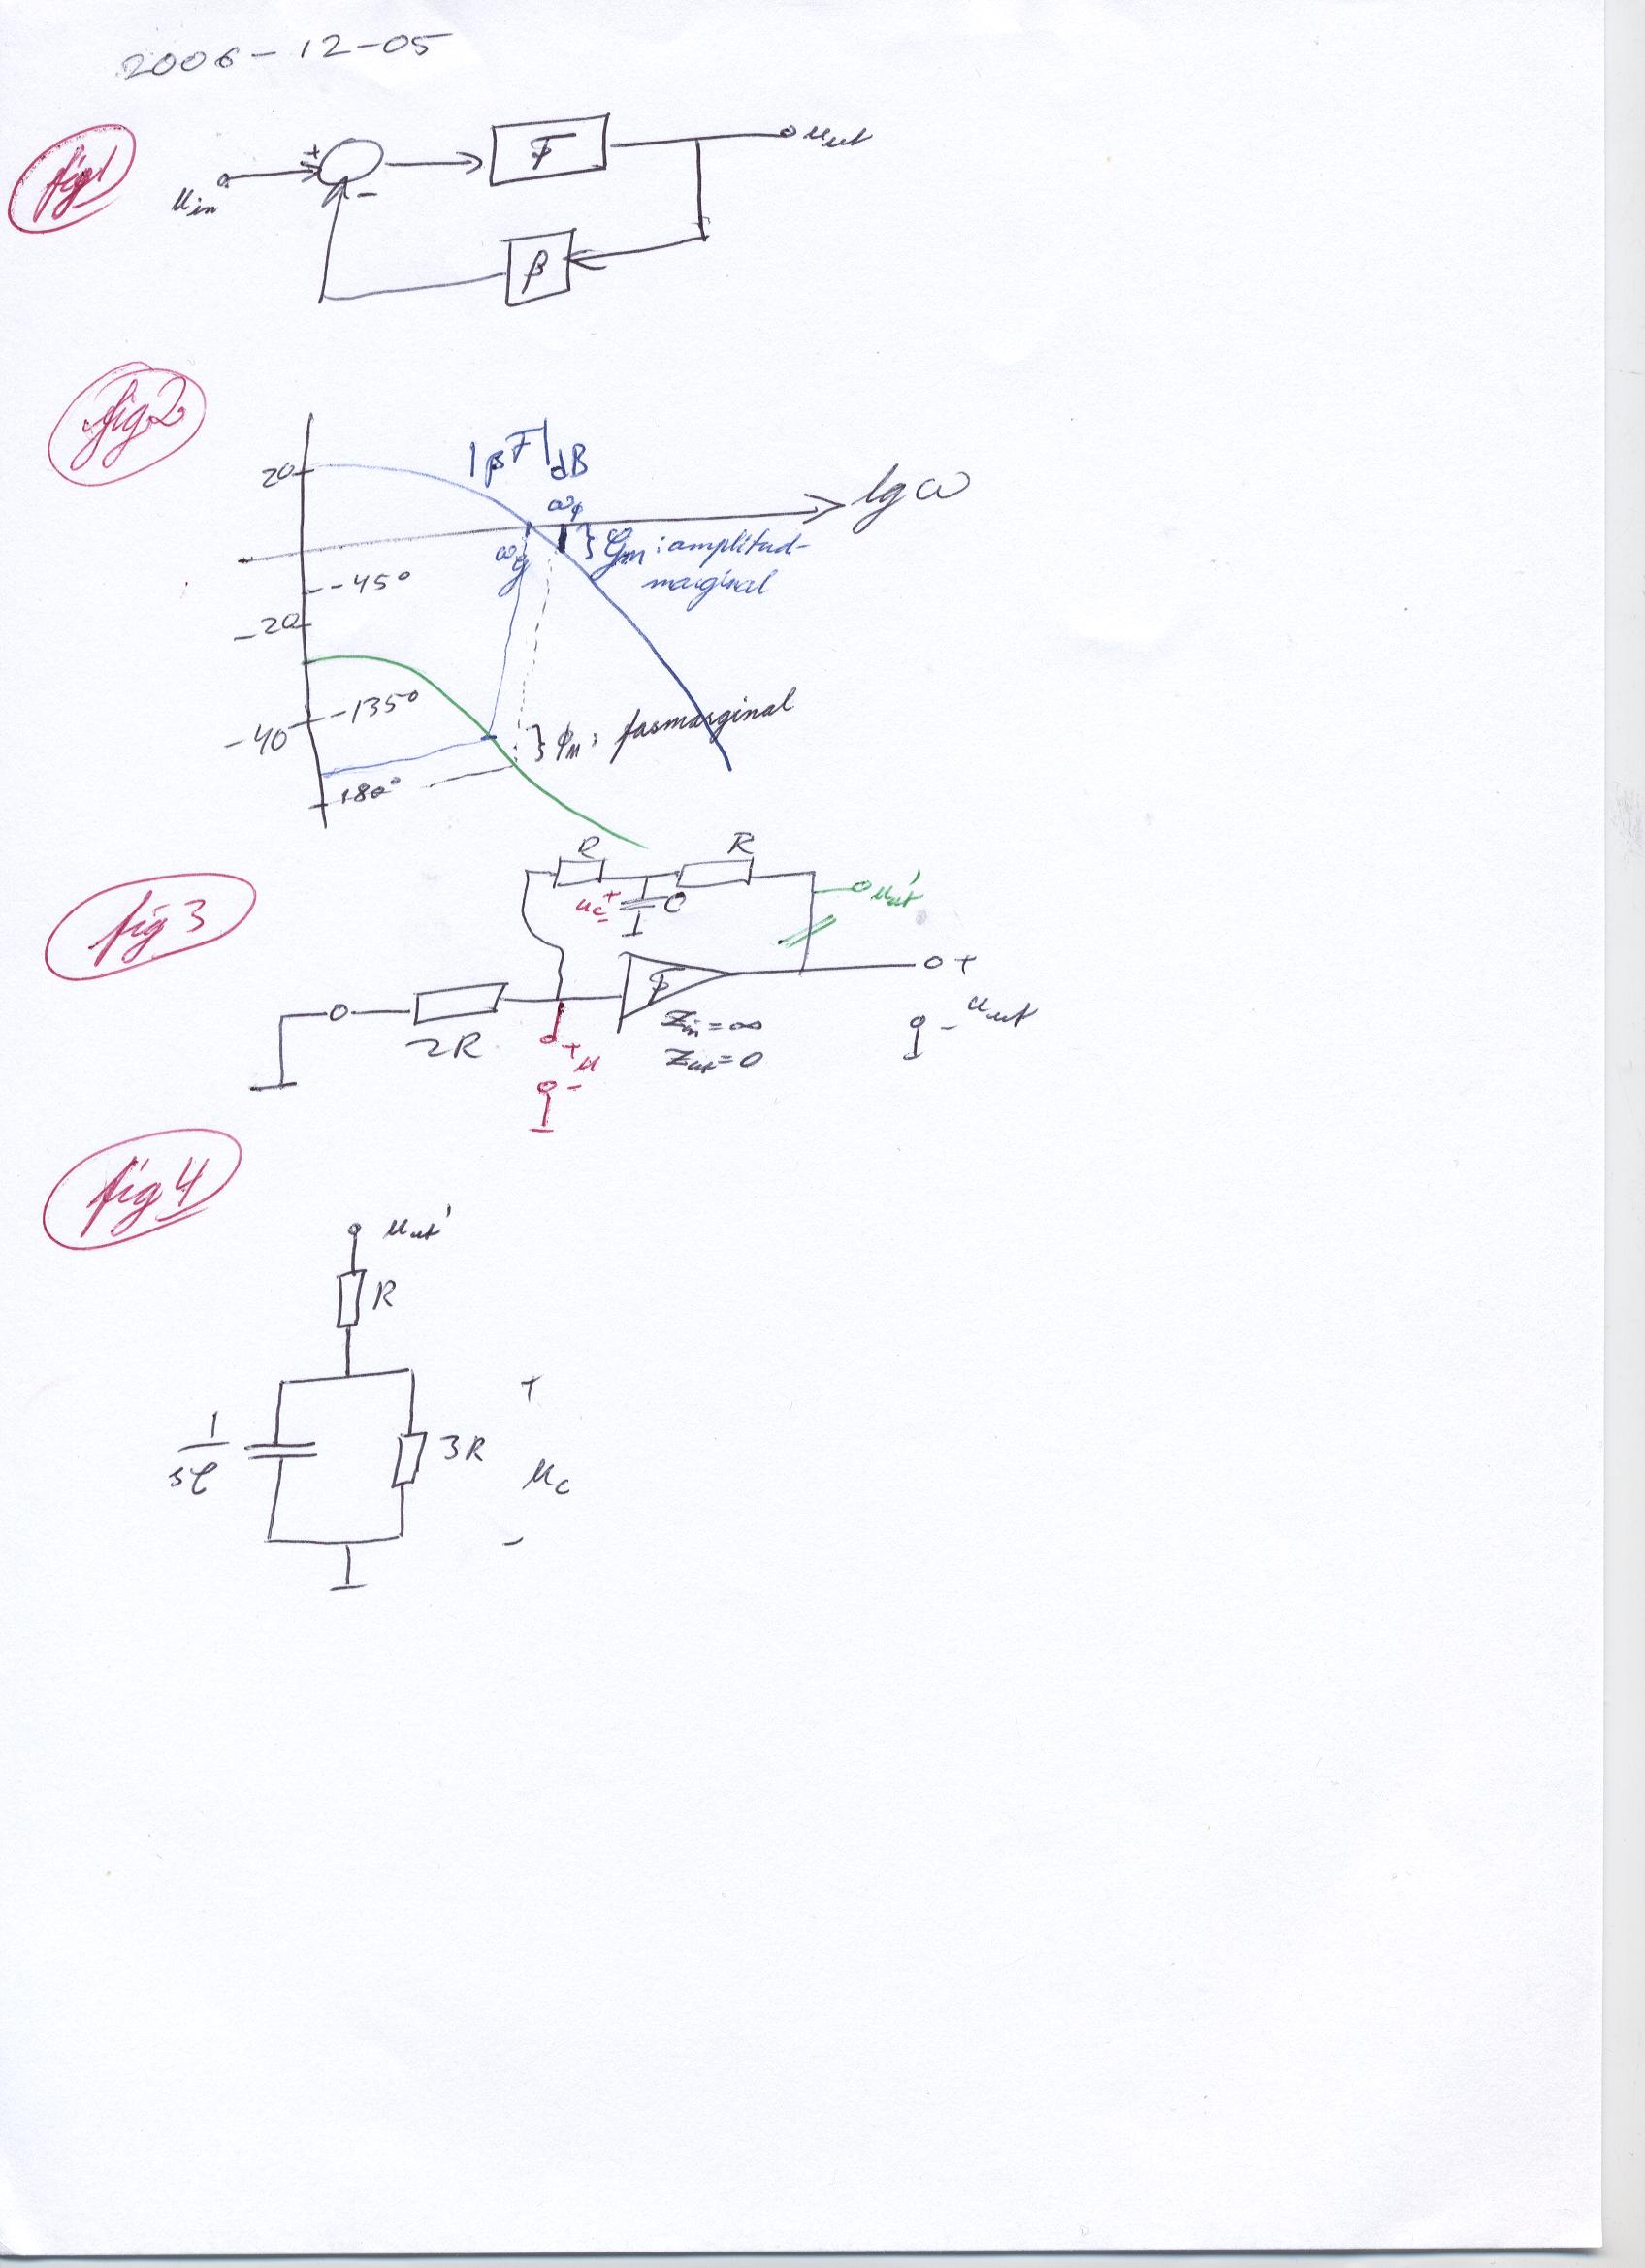 2006-12-05
fig 1
+
F
u_ut
u_in
-
β
fig 2
|βF|dB
20
lg ω
ω_φ
ω_g
} G_m: amplitud-
marginal
-45°
-20
-135°
-40
} φ_m: fasmarginal
180°
R
R
fig 3
u_c
+
-
C
u_ut'
F
+
2R
Z_in=∞
Z_ut=0
- u_ut
+
u
-
fig 4
u_ut'
R
+
1
sC
3R
u_c
-